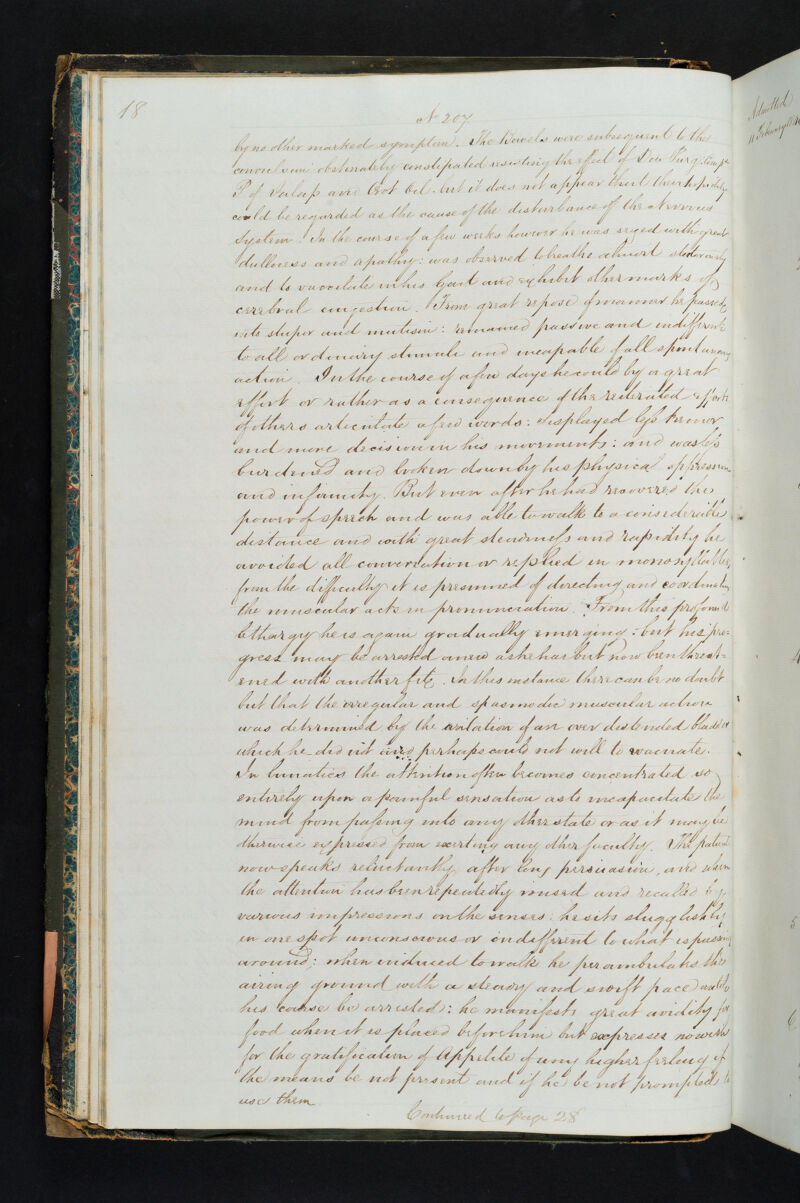 18
No 207
by no other marked symptom. The Bowels were subsequent to the
convulsion obstinately constipated resisting the effect of
P of Jalap and Crot Oil. but it does not appear that their torpidity
could be regarded as the cause of the disturbance of the Nervous
System. In the course of a few weeks however he was seized with great
dullness and apathy: was observed to breathe almost stertorously
and to vaccilate in his Gait and exhibit other marks of
cerebral congestion. From great repose of manner he passed
into stupor and mutism: remained passive and indifferent
to all ordinary stimuli and incapable of all spontaneous
action. In the course of a few days he could by a great
effort or rather as a consequence of the reiterated efforts
of others articulate a few words: displayed less tremor
and more decision in his movements: and was less
burdened and broken down by his physical oppression
and infirmity. But even after he had recovered the
power of speech and was able to walk to a considerable
distance and with great steadiness and rapidity he
avoided all conversation or replied in monosyllables,
from the difficulty it is presumed of directing and coordinating
the muscular acts in pronunciation. From this profound
lethargy he is again gradually emerging: but his pro=
gress may be arrested anew as he has but now been threat=
ened with another fit. In this instance there can be no doubt
but that the irregular and spasmodic muscular action
was determined by the irritation of an over distended bladder
which he did not and perhaps could not will to evacuate.
In lunatics the attention often becomes concentrated so
entirely upon a painful sensation as to incapacitate the
mind from passing into any other state or as it may be
otherwise expressed from exerting any other faculty. The patient
now speaks reluctantly, after long persuasion, and when
the attention has been repeatedly roused and recalled by
various impressions on the senses: he sits sluggishly
in one spot unconscious or indifferent to what is passing
around; when induced to walk he perambulates the
airing ground with a steady and swift pace until
his course be arrested: he manifests great avidity for
food when it is placed before him but expresses no wish
for the gratification of Appetite of any higher feeling if
the means be not present and if he be not prompted to
use them
Continued to Page 28
Admitted
11 February